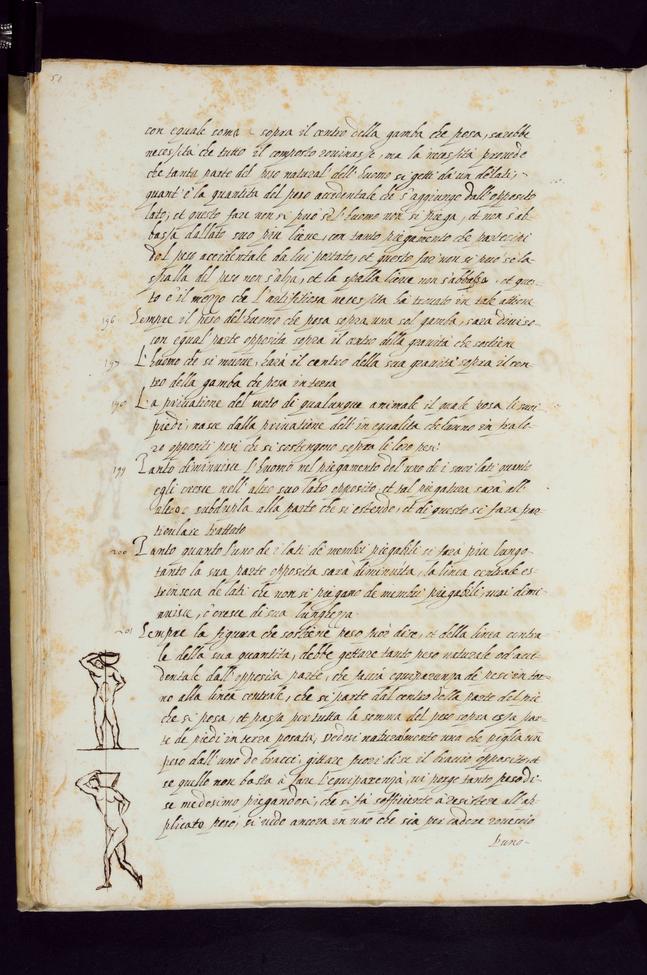 51
con equale soma sopra il centro della gamba che posa, sarebbe
necessita che tutto il composto rouinasse, ma la necessita provede
che tanta parte del peso natural dell'huomo si getti da un de lati,
quant'è la quantita del peso accidentale che s'aggiunge dall'opposito
lato, et questo fare non si puo se l'huomo non si piega, et non s'ab-
bassa dallato suo piu lieue, con tanto piegamento che partecipi
del peso accidentale da lui portato, et questo far non si puo se la
spalla del peso non s'alza, et la spalla lieue non s'abbassa, et ques-
to è il mezzo che l'artifitiosa necessita hà trouato in tale attione
196 Sempre il peso del huomo che posa sopra una sol gamba, sara diuiso
con equal parte opposita sopra il centro della grauità che sostiene
197 L'huomo che si muoue, hara il centro della sua grauità sopra il cen-
tro della gamba che posa in terra
198 La priuatione del moto di qualunque animale il quale posa li suoi
piedi, nasce dalla priuatione dell'inequalita che hanno in fra lo-
ro oppositi pesi che si sostengono sopra li loro pesi
199 Tanto diminuisce l'huomo nel piegamento del uno de i suoi lati quanto
egli cresce nell'altro suo lato opposito, et tal piegatura sarà all'
subdupla alla parte che si estende, et di questo si fara par-
ticulare trattato
200 Tanto quanto l'uno de i lati de membri piegabili si farà piu lungo
tanto la sua parte opposita sarà diminuita, la linea centrale es-
trinseca de lati che non si piegano de membri piegabili, mai dimi-
nuisce, o cresce di sua lunghezza
201 Sempre la figura che sostiene peso fuor di se, et della linea centra-
le della sua quantita, debbe gettare tanto peso naturale od acci-
dentale dall'opposita parte, che facia equiparanza de pesi in tor-
no alla linea centrale, che si parte dal centro della parte del piè
che si posa, et passa per tutta la somma del peso sopra essa par-
te de piedi in terra posata, uedesi naturalmente uno che piglia un
peso dall'uno de bracci, gittare fuori di se il braccio opposito, et
se quello non basta à fare l'equiparanza, ui porge tanto peso di
se medesimo piegandosi, che si fà soffitiente à resistere all'ap-
plicato peso, si uede ancora in uno che sia per cadere rouescio
l'uno-